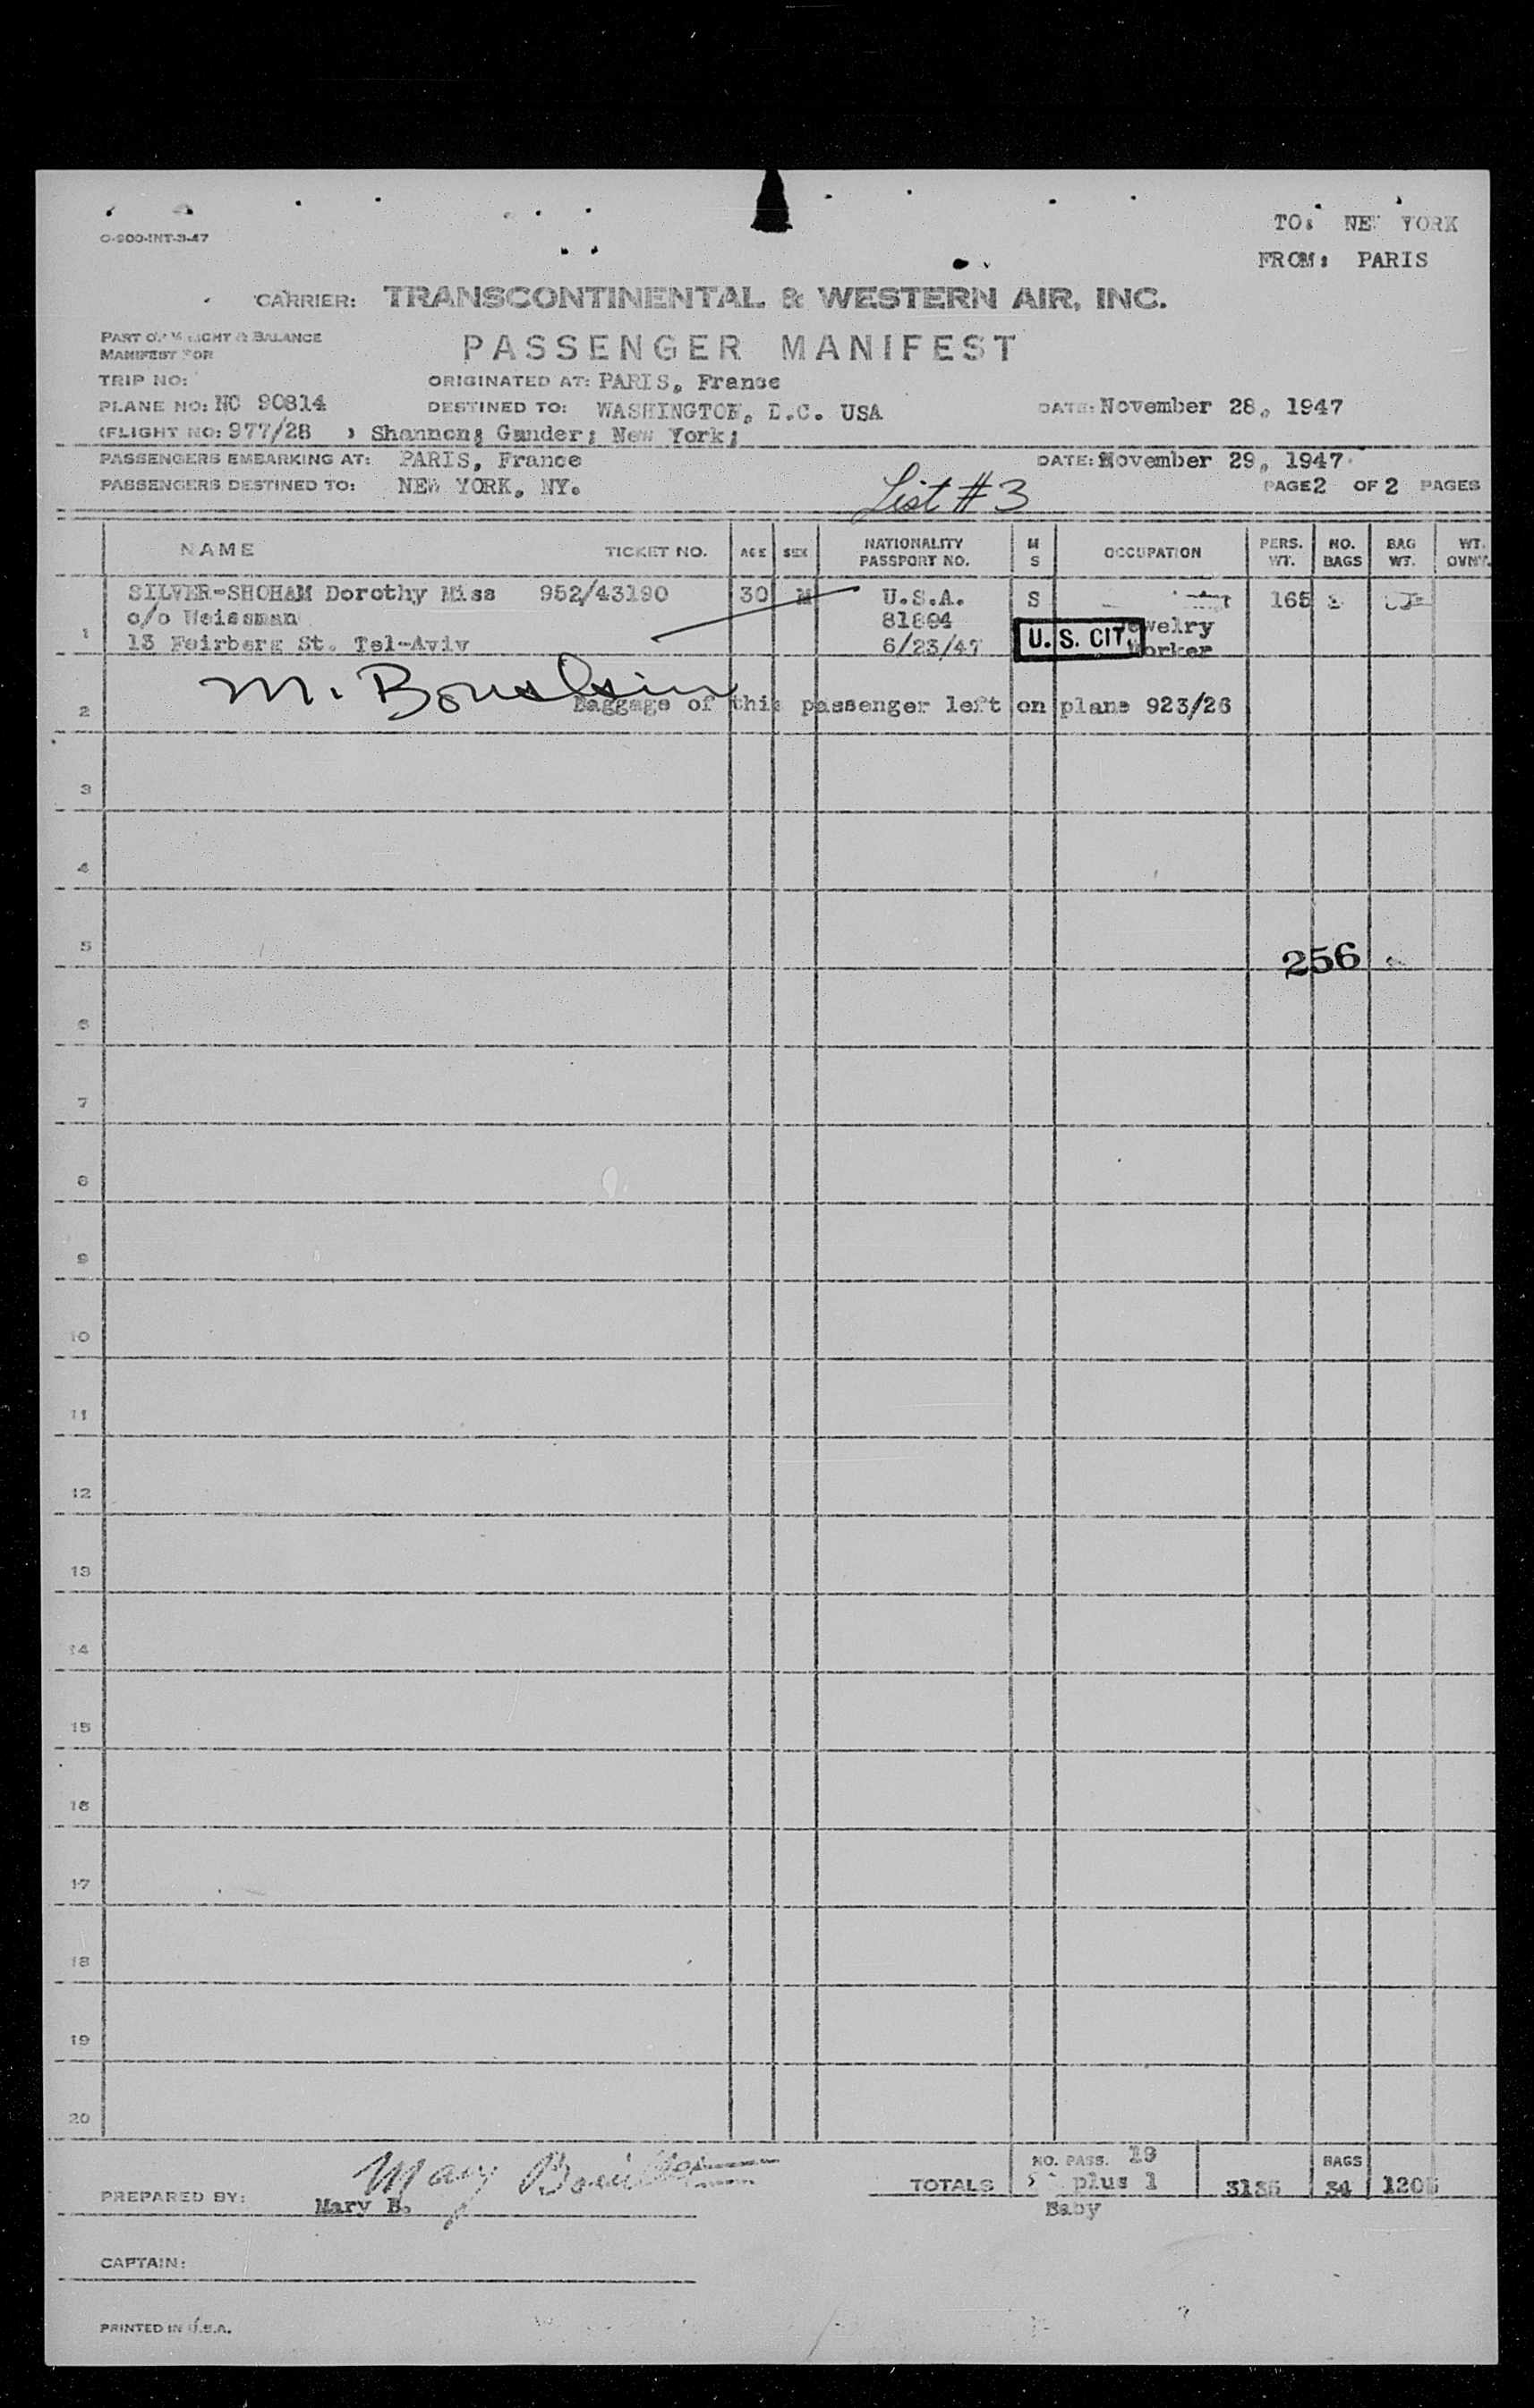 TO: NEW YORK
O-900-INT-3-47
FROM: PARIS
CARRIER: TRANSCONTINENTAL & WESTERN AIR, INC.
PART OF WEIGHT & BALANCE
MANIFEST FOR
PASSENGER MANIFEST
TRIP NO:
ORIGINATED AT: PARIS, France
PLANE NO: NC 90814
DESTINED TO: WASHINGTON, D.C. USA
DATE: November 28, 1947
(FLIGHT NO: 977/28 ) Shannon; Gander; New York;
PASSENGERS EMBARKING AT: PARIS, France
DATE: November 29, 1947
PASSENGERS DESTINED TO: NEW YORK, NY.
List #3
PAGE 2 OF 2 PAGES
NAME TICKET NO. AGE SEX NATIONALITY PASSPORT NO. M S OCCUPATION PERS. WT. NO. BAGS BAG WT. WT. OVNT.
SILVER-SHOHAM Dorothy Miss 952/43190 30 U.S.A. S 165
c/o Weissman 81894 Jewelry
1 13 Feirberg St. Tel-Aviv 6/23/47 U.S. CIT. Worker
M.
2 Baggage of this passenger left on plane 923/26
3
4
5
256
6
7
8
9
10
11
12
13
14
15
16
17
18
19
20
Mary
NO. PASS. 19 BAGS
TOTALS plus 1 3135 34
PREPARED BY: Mary B.
Baby
CAPTAIN:
PRINTED IN U.S.A.